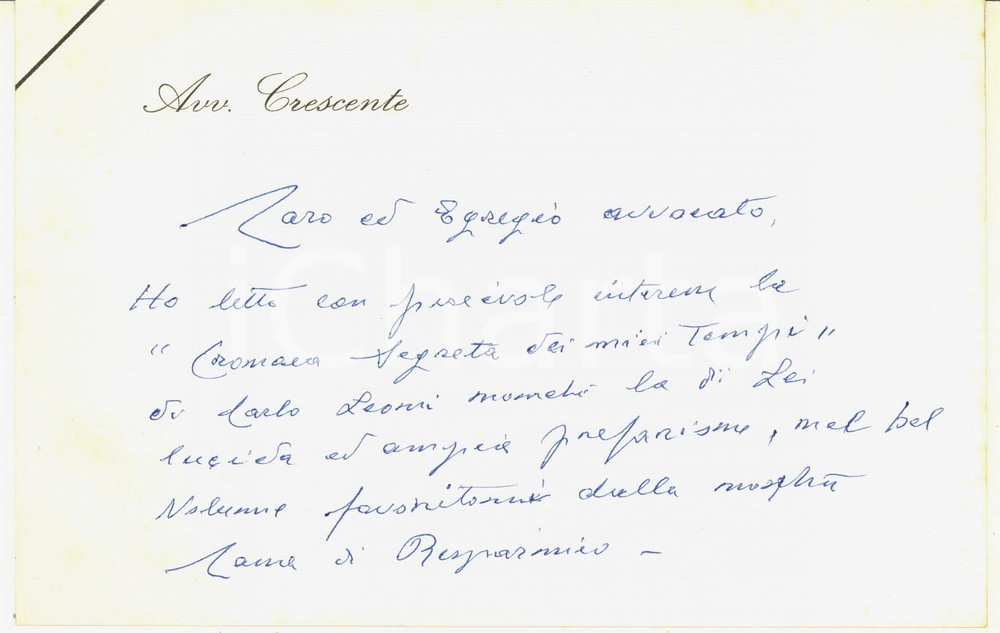 Avv. Crescente
Caro ed Egregio avvocato,
Ho letto con piacevole interesse la
"Cronaca segreta dei miei Tempi"
di Carlo Leoni nonché la di Lei
lucida ed ampia prefazione, nel bel
Volume favoritomi dalla nostra
Cassa di Risparmio -
iCharta